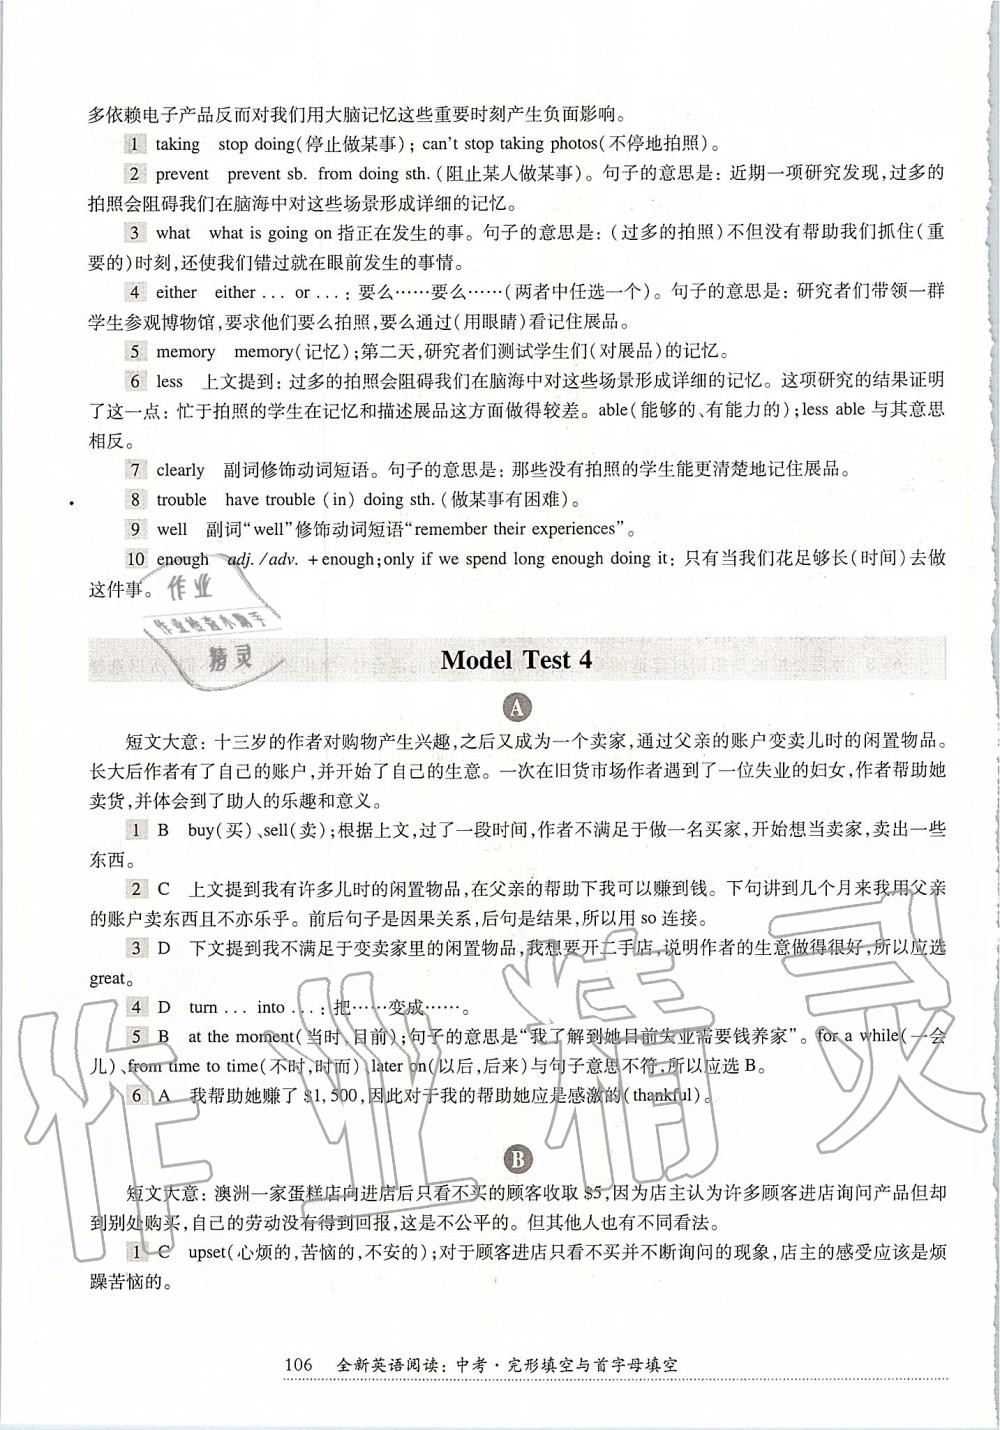 多依赖电子产品反而对我们用大脑记忆这些重要时刻产生负面影响。
1 taking stop doing(停止做某事); can't stop taking photos(不停地拍照)。
2 prevent prevent sb. from doing sth. (阻止某人做某事)。句子的意思是: 近期一项研究发现,过多的
拍照会阻碍我们在脑海中对这些场景形成详细的记忆。
3 what what is going on 指正在发生的事。句子的意思是: (过多的拍照)不但没有帮助我们抓住(重
要的)时刻,还使我们错过就在眼前发生的事情。
4 either either ... or ...: 要么……要么……(两者中任选一个)。句子的意思是: 研究者们带领一群
学生参观博物馆,要求他们要么拍照,要么通过(用眼睛)看记住展品。
5 memory memory(记忆);第二天,研究者们测试学生们(对展品)的记忆。
6 less 上文提到: 过多的拍照会阻碍我们在脑海中对这些场景形成详细的记忆。这项研究的结果证明
了这一点: 忙于拍照的学生在记忆和描述展品这方面做得较差。able(能够的、有能力的);less able 与其意思
相反。
7 clearly 副词修饰动词短语。句子的意思是: 那些没有拍照的学生能更清楚地记住展品。
8 trouble have trouble (in) doing sth. (做某事有困难)。
9 well 副词“well”修饰动词短语“remember their experiences”。
10 enough adj. /adv. +enough;only if we spend long enough doing it: 只有当我们花足够长(时间)去做
这件事。
作业
作业检查小助手
精灵
Model Test 4
A
短文大意: 十三岁的作者对购物产生兴趣,之后又成为一个卖家,通过父亲的账户变卖儿时的闲置物品。
长大后作者有了自己的账户,并开始了自己的生意。一次在旧货市场作者遇到了一位失业的妇女,作者帮助她
卖货,并体会到了助人的乐趣和意义。
1 B buy(买)、sell(卖);根据上文,过了一段时间,作者不满足于做一名买家,开始想当卖家,卖出一些
东西。
2 C 上文提到我有许多儿时的闲置物品,在父亲的帮助下我可以赚到钱。下句讲到几个月来我用父亲
的账户卖东西且不亦乐乎。前后句子是因果关系,后句是结果,所以用 so 连接。
3 D 下文提到我不满足于变卖家里的闲置物品,我想要开二手店,说明作者的生意做得很好,所以应选
great。
4 D turn ... into ...: 把……变成……。
5 B at the moment(当时,目前);句子的意思是“我了解到她目前失业需要钱养家”。for a while(一会
儿)、from time to time(不时,时而)、later on(以后,后来)与句子意思不符,所以应选 B。
6 A 我帮助她赚了 $1,500,因此对于我的帮助她应是感激的(thankful)。
作业精灵
B
短文大意: 澳洲一家蛋糕店向进店后只看不买的顾客收取 $5,因为店主认为许多顾客进店询问产品但却
到别处购买,自己的劳动没有得到回报,这是不公平的。但其他人也有不同看法。
1 C upset(心烦的,苦恼的,不安的);对于顾客进店只看不买并不断询问的现象,店主的感受应该是烦
躁苦恼的。
106 全新英语阅读: 中考·完形填空与首字母填空